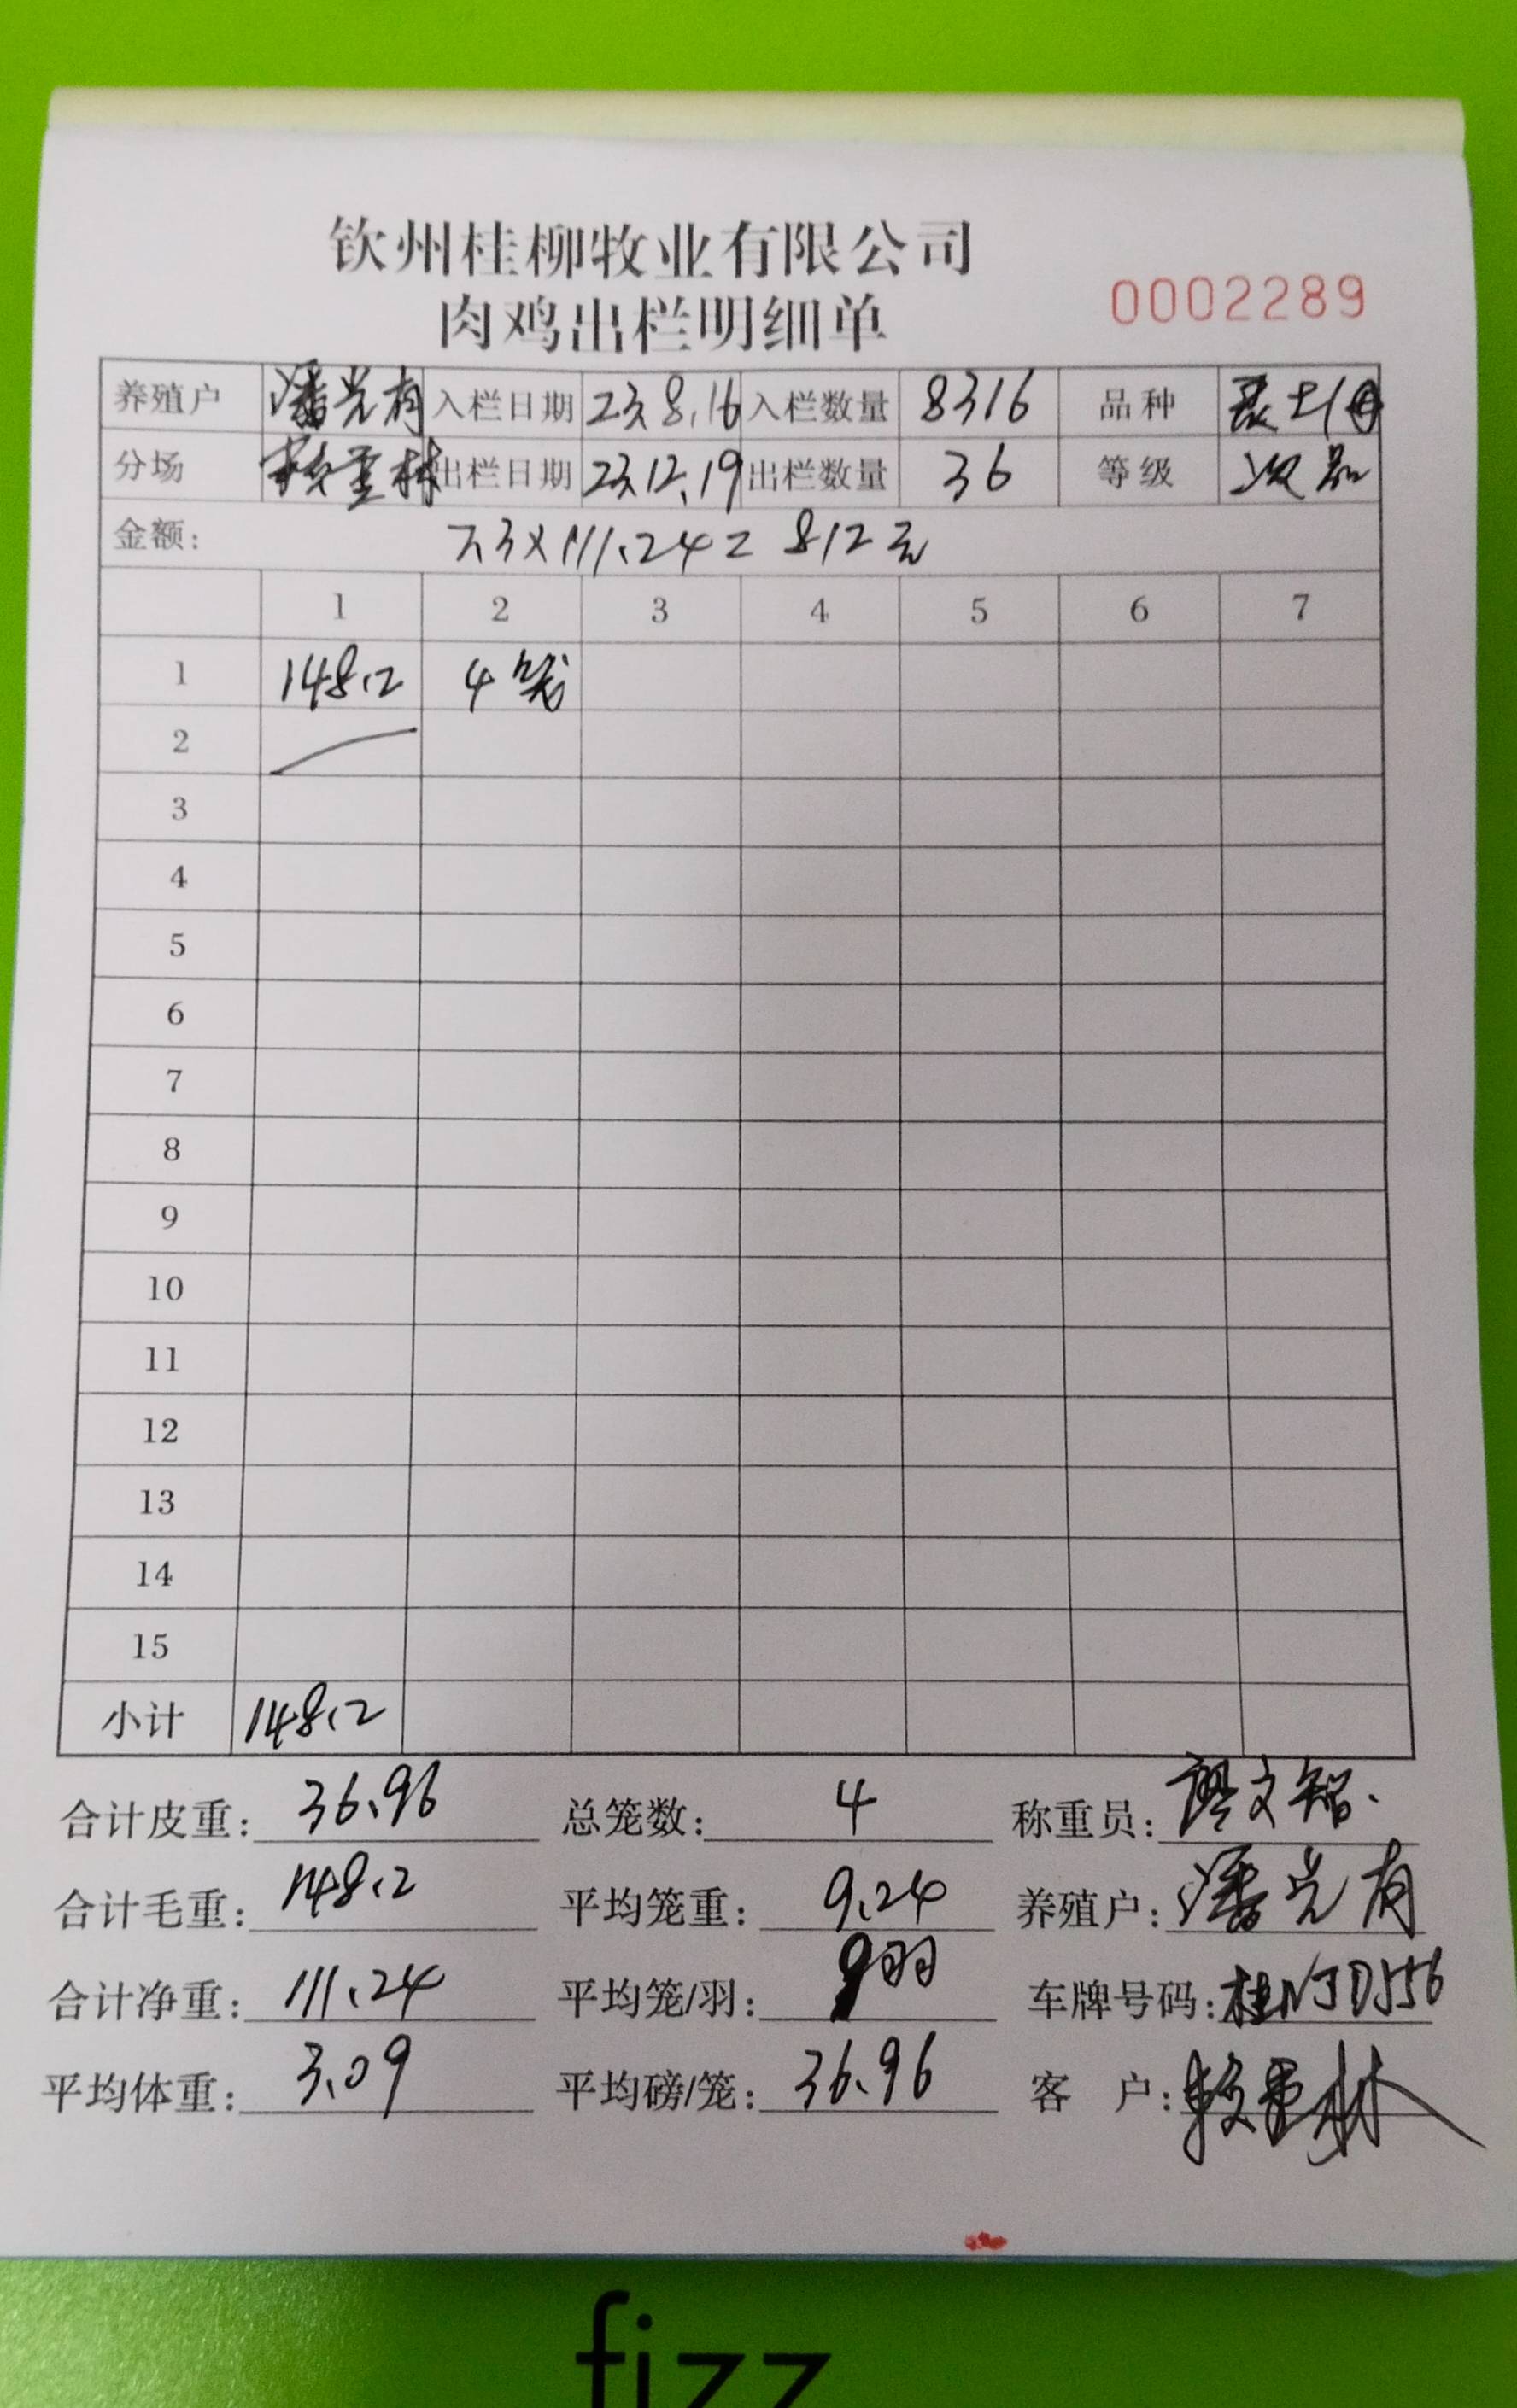 钦州桂柳牧业有限公司
肉鸡出栏明细单 0002289
养殖户 潘光有 入栏日期 23.8.16 入栏数量 8316 品种 土1
分场 出栏日期 23.12.19 出栏数量 36 等级 次品
金额: 7.3×111.24=812元
1 2 3 4 5 6 7
1 148.2 4笼
2
3
4
5
6
7
8
9
10
11
12
13
14
15
小计 148.2
合计皮重: 36.96 总笼数: 4 称重员: 廖文智.
合计毛重: 148.2 平均笼重: 9.24 养殖户: 潘光有
合计净重: 111.24 平均笼/羽: 9羽 车牌号码: 桂NJD556
平均体重: 3.09 平均磅/笼: 36.96 客 户:
fizz